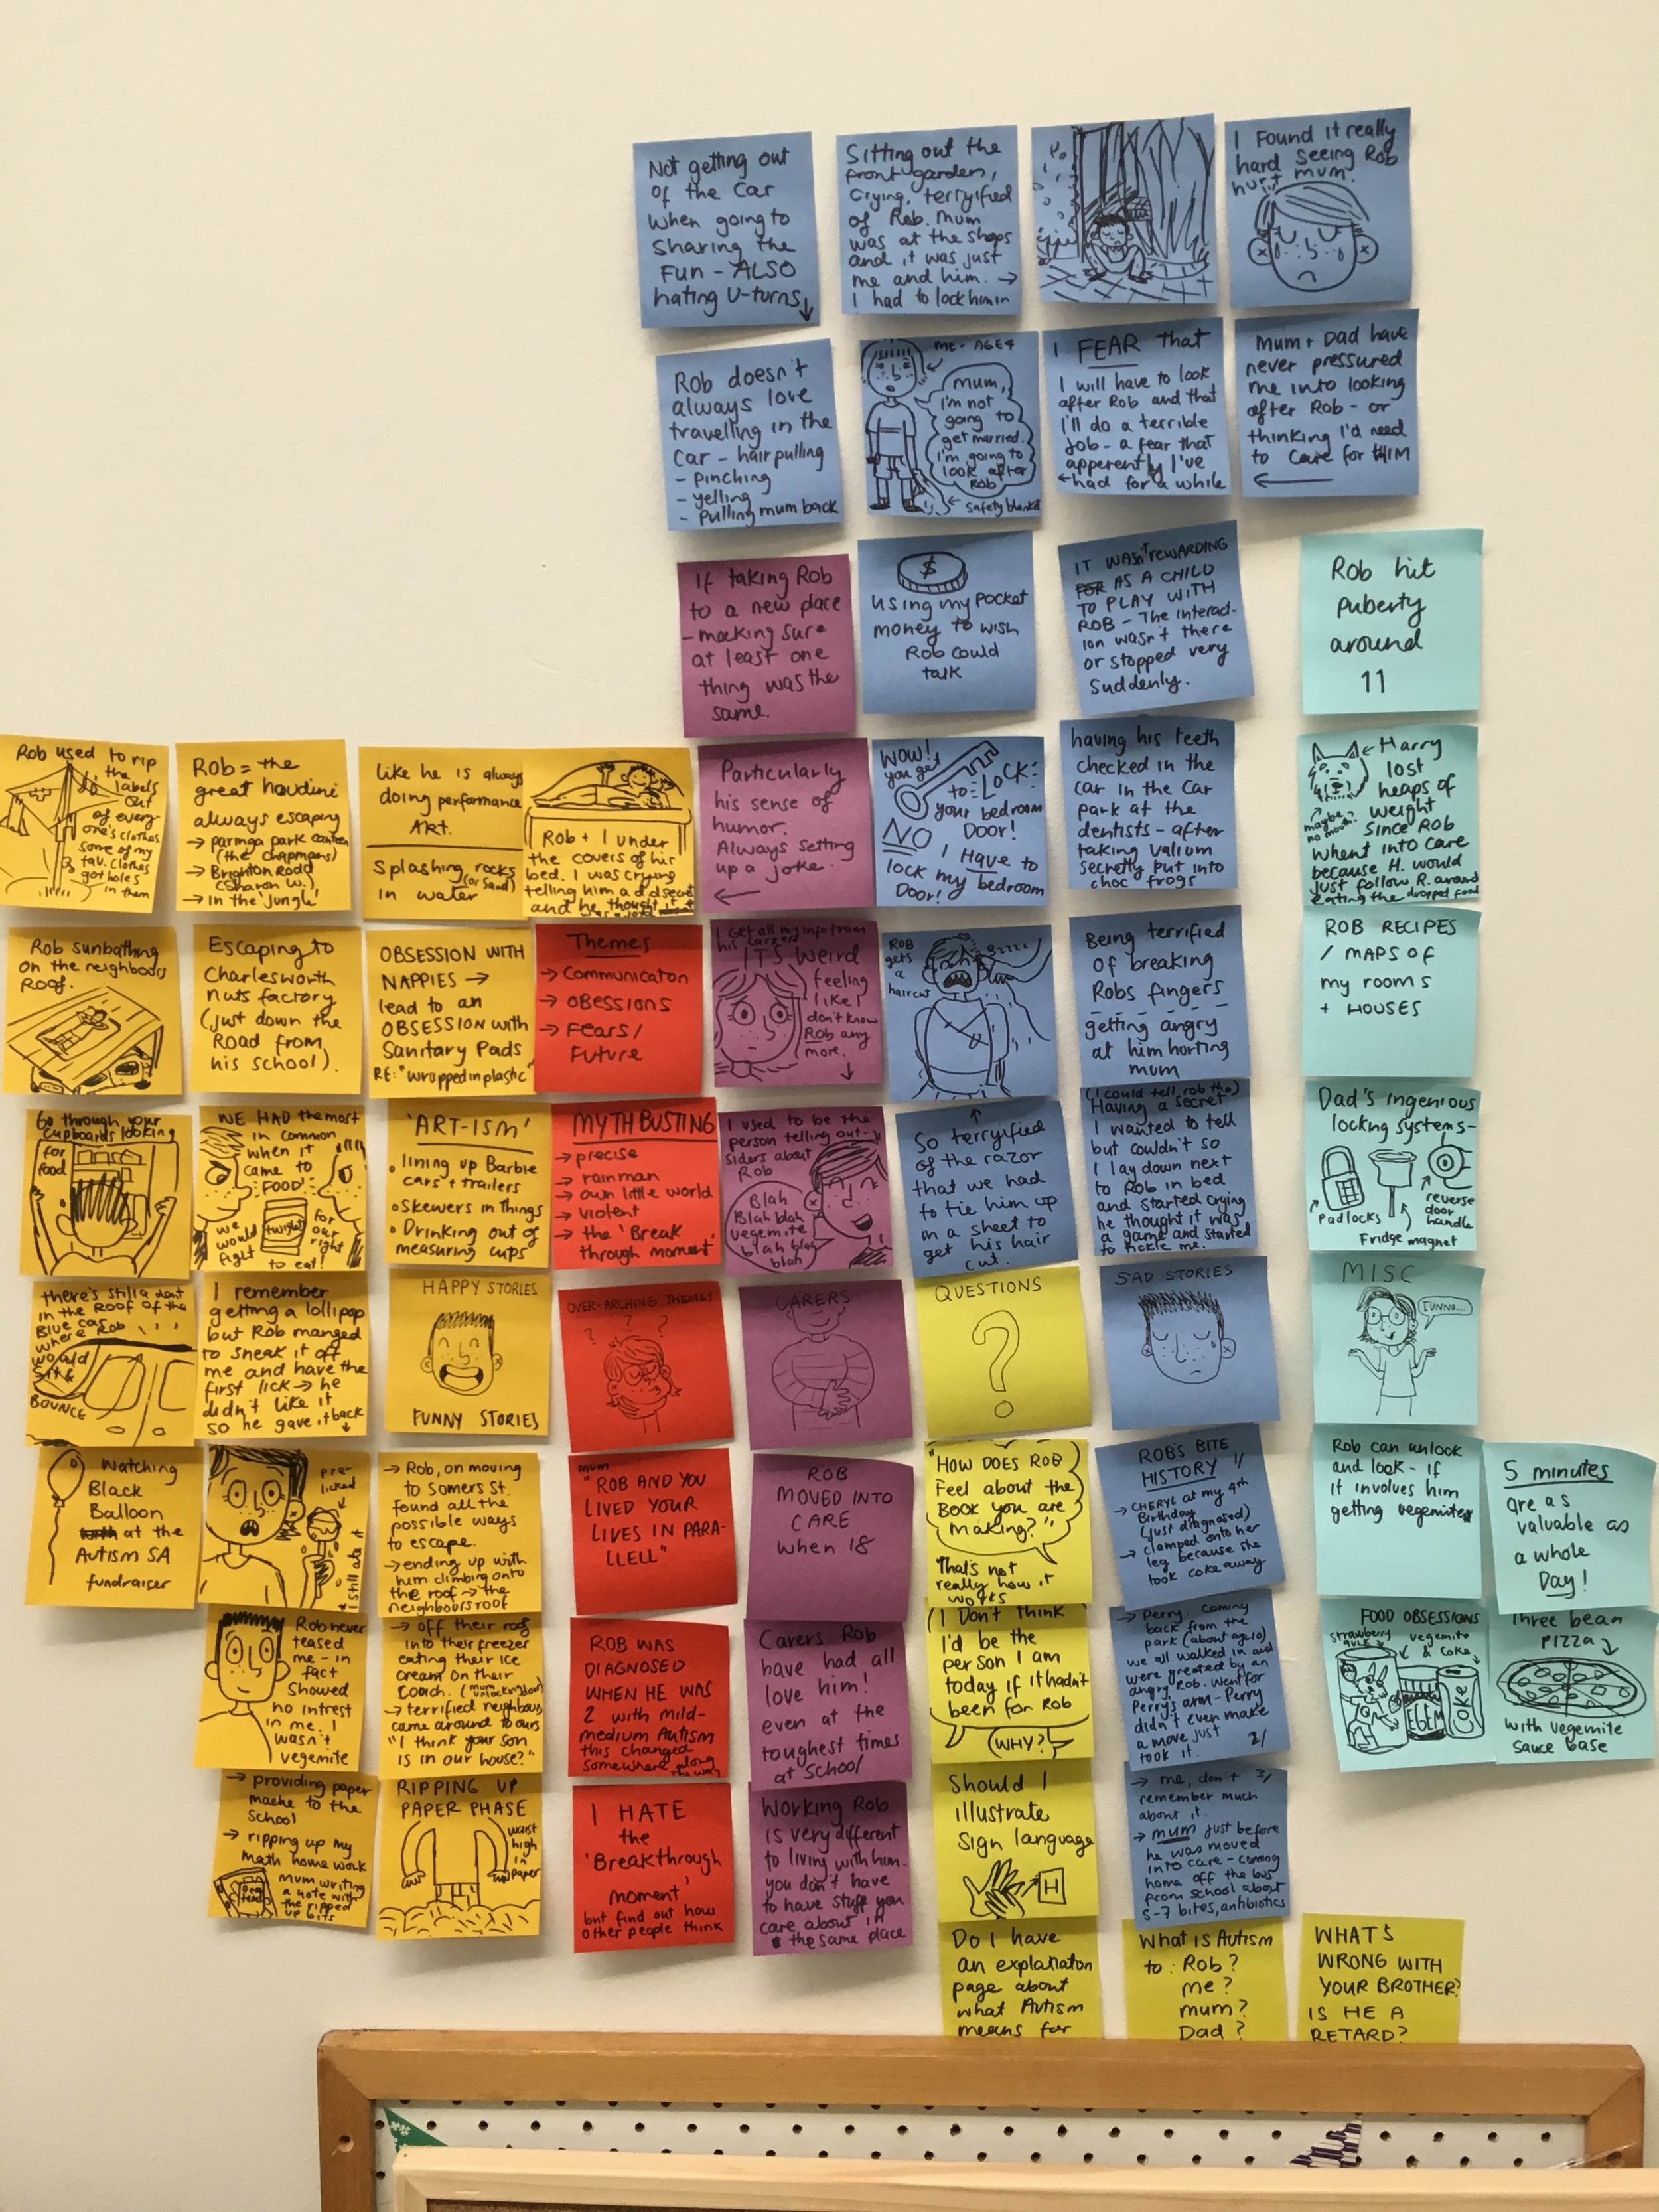 Not getting out
of the Car
when going to
Sharing the
Fun - ALSO
hating U-turns
Sitting out the
front garden,
Crying, terryfied
of Rob. Mum
was at the shops
and it was just
me and him. →
I had to lock him in
I Found it really
hard seeing Rob
hurt mum.
Rob doesn't
always love
travelling in the
Car - hair pulling
- pinching
- yelling
- Pulling mum back
ME - AGE 4
Mum,
I'm not
going to
get married.
I'm going to
look after
Rob
safety blanket
I FEAR that
I will have to look
after Rob and that
I'll do a terrible
Job - a fear that
apparently I've
←had for a while
Mum + Dad have
never pressured
me into looking
after Rob - or
thinking I'd need
to Care for HIM
If taking Rob
to a new place
- making sure
at least one
thing was the
same.
$
using my pocket
money to wish
Rob could
talk
IT WASn't REWARDING
FOR AS A CHILD
TO PLAY WITH
ROB - The interact-
ion wasn't there
or stopped very
Suddenly.
Rob hit
Puberty
around
11
Rob used to rip
the
labels
out
of every
one's clothes
some of my
fav. clothes
got holes
in them
Rob = the
great houdini
always escaping
→ paringa park canteen
(the chapmans)
→ Brighton Road
(Sharon W.)
→ in the 'jungle'
like he is always
doing performance
ART.
Splashing rocks
(or sand)
in water
Rob + I under
the covers of his
bed. I was crying
telling him a secret
and he thought it
Particularly
his sense of
humor.
Always setting
up a joke.
WOW!
you get
to LOCK
your bedroom
Door!
NO I Have to
lock my bedroom
Door!
having his teeth
checked in the
car in the car
park at the
dentists - after
taking Valium
secretly put into
choc frogs
Harry
lost
heaps of
weight
since Rob
whent into care
because H. would
just follow R. around
Eating the dropped food
maybe
no mouth?
Rob sunbathing
on the neighbours
Roof.
Escaping to
Charlesworth
nuts factory
(just down the
Road from
his school).
OBSESSION WITH
NAPPIES →
lead to an
OBSESSION with
Sanitary Pads
RE: "wrapped in plastic"
Themes
→ Communicaton
→ OBessions
→ Fears/
Future
I get all my info from
his carers
IT'S Weird
feeling
like I
don't know
Rob any
more.
ROB
gets
a
haircut
BZZZZ
Being terrified
of breaking
Robs fingers
getting angry
at him hurting
mum
ROB RECIPES
/ MAPS OF
my rooms
+ HOUSES
Go through your
cupboards looking
for
food
WE HAD the most
in common
when it
came to
FOOD!
we
would
fight
twights
for
our
right
to eat!
'ART-ISM'
• lining up Barbie
cars + trailers
• Skewers in things
• Drinking out of
measuring cups
MYTH BUSTING
→ precise
→ rainman
→ own little world
→ violent
→ the 'Break
through moment'
I used to be the
person telling out-
siders about
Rob
Blah
Blah blah
vegemite
blah blah
blah
So terryfied
of the razor
that we had
to tie him up
in a sheet to
get his hair
cut.
(I could tell rob tho)
Having a secret
I wanted to tell
but couldn't so
I lay down next
to Rob in bed
and started crying
he thought it was
a game and started
to tickle me.
Dad's ingenious
locking systems-
Padlocks
Fridge magnet
reverse
door
handle
there's still a dent
in the ROOF of the
Blue car
where Rob
would
sit &
BOUNCE
I remember
getting a lollipop
but Rob manged
to sneak it off
me and have the
first lick → he
didn't like it
so he gave it back
HAPPY STORIES
FUNNY STORIES
OVER-ARCHING THEMES
? ? ?
CARERS
QUESTIONS
?
SAD STORIES
MISC
I UNNO...
Watching
Black
Balloon
at the
Autism SA
fundraiser
pre-
licked
I still ate it
→ Rob, on moving
to Somers St.
found all the
possible ways
to escape.
→ ending up with
him climbing onto
the roof → the
neighbours roof
mum
"ROB AND YOU
LIVED YOUR
LIVES IN PARA-
LLELL"
ROB
MOVED INTO
CARE
when 18
"HOW DOES ROB
Feel about the
BOOK you are
making?"
"That's not
really how it
works
ROB'S BITE
HISTORY 1/
→ CHERYL at my 4th
Birthday
(just diagnosed)
→ clamped onto her
leg because she
took coke away
Rob can unlock
and look - if
it involves him
getting vegemite
5 minutes
are as
valuable as
a whole
Day!
Rob never
teased
me - in
fact
Showed
no intrest
in me. I
wasn't
vegemite
→ off their roof
into their freezer
eating their ice
cream on their
coach. (mum unlocking door)
→ terrified neighbours
came around to ours
"I think your son
is in our house?"
ROB WAS
DIAGNOSED
WHEN HE WAS
2 with mild-
medium Autism
this changed
somewhere along
the way
Carers Rob
have had all
love him!
even at the
toughest times
at School
(I Don't think
I'd be the
person I am
today if it hadn't
been for Rob
(WHY?)
→ Perry. Coming
back from the
park (about age 10)
we all walked in and
were greated by an
angry Rob. Went for
Perry's arm - Perry
didn't even make
a move just
took it. 2/
FOOD OBSESSIONS
strawberry
quik
vegemite
& coke
EGEM
COKE
Three bean
PIZZA
with vegemite
sauce base
→ providing paper
mache to the
school
→ ripping up my
math home work
mum writing
a note with
the ripped
up bits
RIPPING UP
PAPER PHASE
waist
high
in
paper
I HATE
the
'Breakthrough
moment'
but find out how
other people think
Working Rob
is very different
to living with him.
you don't have
to have stuff you
care about in
the same place
Should I
illustrate
Sign language
H
→ me, don't 3/
remember much
about it.
→ mum just before
he was moved
into care - coming
home off the bus
from school about
5-7 bites, antibiotics
Do I have
an explanation
page about
what Autism
means for
What is Autism
to: Rob?
me?
mum?
Dad?
WHAT'S
WRONG WITH
YOUR BROTHER?
IS HE A
RETARD?